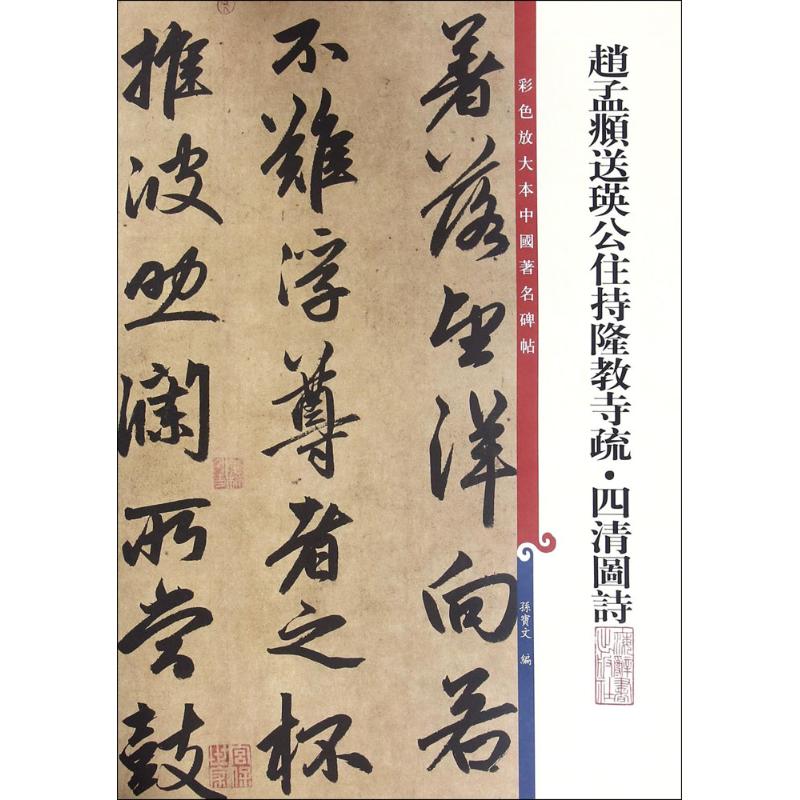 趙孟頫送瑛公住持隆教寺疏·四清圖詩
上海辭書出版社
彩色放大本中國著名碑帖
孫寶文 編
著落望洋向若
不難浮尊者之杯
推波助瀾所尝鼓